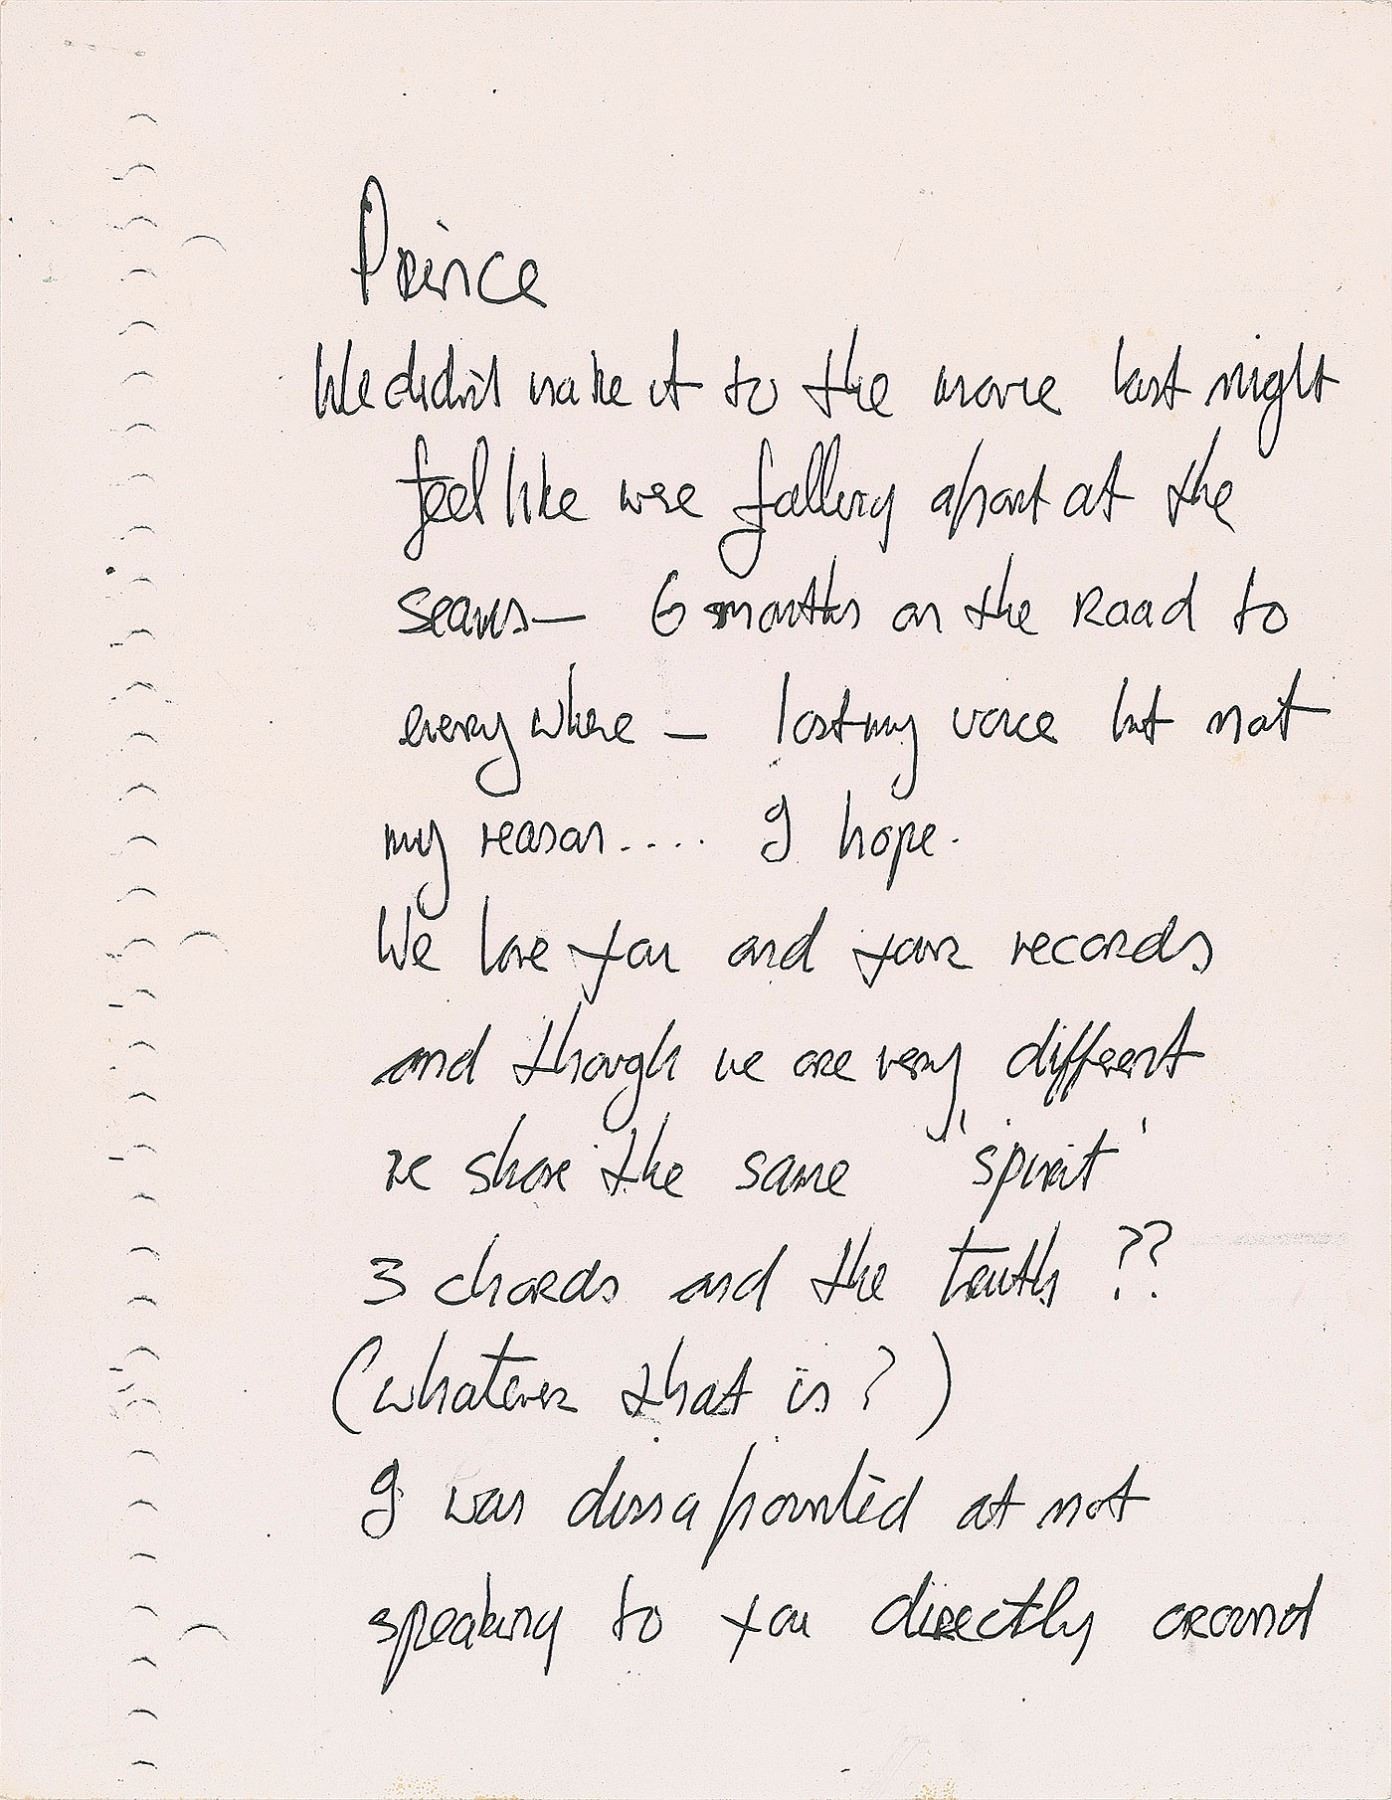 Prince
We didn't make it to the movie last night
feel like we're falling apart at the
seams — 6 months on the Road to
everywhere — lost my voice but not
my reason.... I hope.
We love you and your records
and though we are very different
we share the same 'spirit'
3 chords and the truth ??
(whatever that is?)
I was dissapointed at not
speaking to you directly around